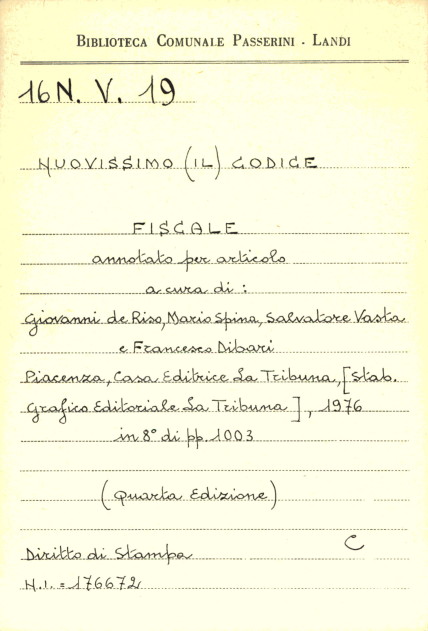 BIBLIOTECA COMUNALE PASSERINI - LANDI
16 N. V. 19
NUOVISSIMO (IL) CODICE
FISCALE
annotato per articolo
a cura di :
Giovanni de Riso, Mario Spina, Salvatore Vasta
e Francesco Dibari
Piacenza, Casa Editrice La Tribuna, [Stab.
Grafico Editoriale La Tribuna], 1976
in 8° di pp. 1003
(Quarta Edizione)
C
Diritto di Stampa
N.I. = 176672